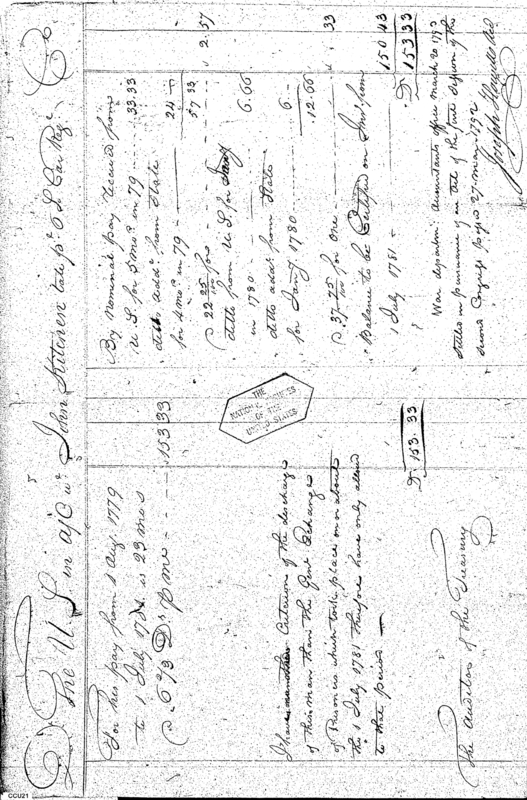 Dr The U S in a/c wt John Kitchen late pr S L Car Regt Cr
For his pay from 1 Aug. 1779
to 1 July 1781 is 23 mos
@ 6 2/3 Ds pr mo - - - - 153 33
I have no other Criterion of the discharge
of this man than the Genl Exchange
of Prisoners which took place on or about
the 1 July 1781 therefore have only allowed
to that period
D. 153. 33
The Auditor of the Treasury
By nominal pay received from
U S for 5 mos in 79 - - - 33.33
ditto addl from State
for 4 mos in 79 - 24 -
57 33
@ 22 25/100 for one - - - - 2.57
ditto from U. S. for Jany
in 1780 - - 6.66
ditto addl from State
for Jany 1780 - - 6 -
12.66
@ 37 75/100 for one - - - - 33
Balance to be Certified on Int. from
1 July 1781 - 150 43
D. 153 33
War department Accountants office March 20 1793
Settled in pursuance of an act of the first Session of the
second Congress passed 27 March 1792
Joseph Howell
THE
NATIONAL ARCHIVES
OF THE
UNITED STATES
CCU21